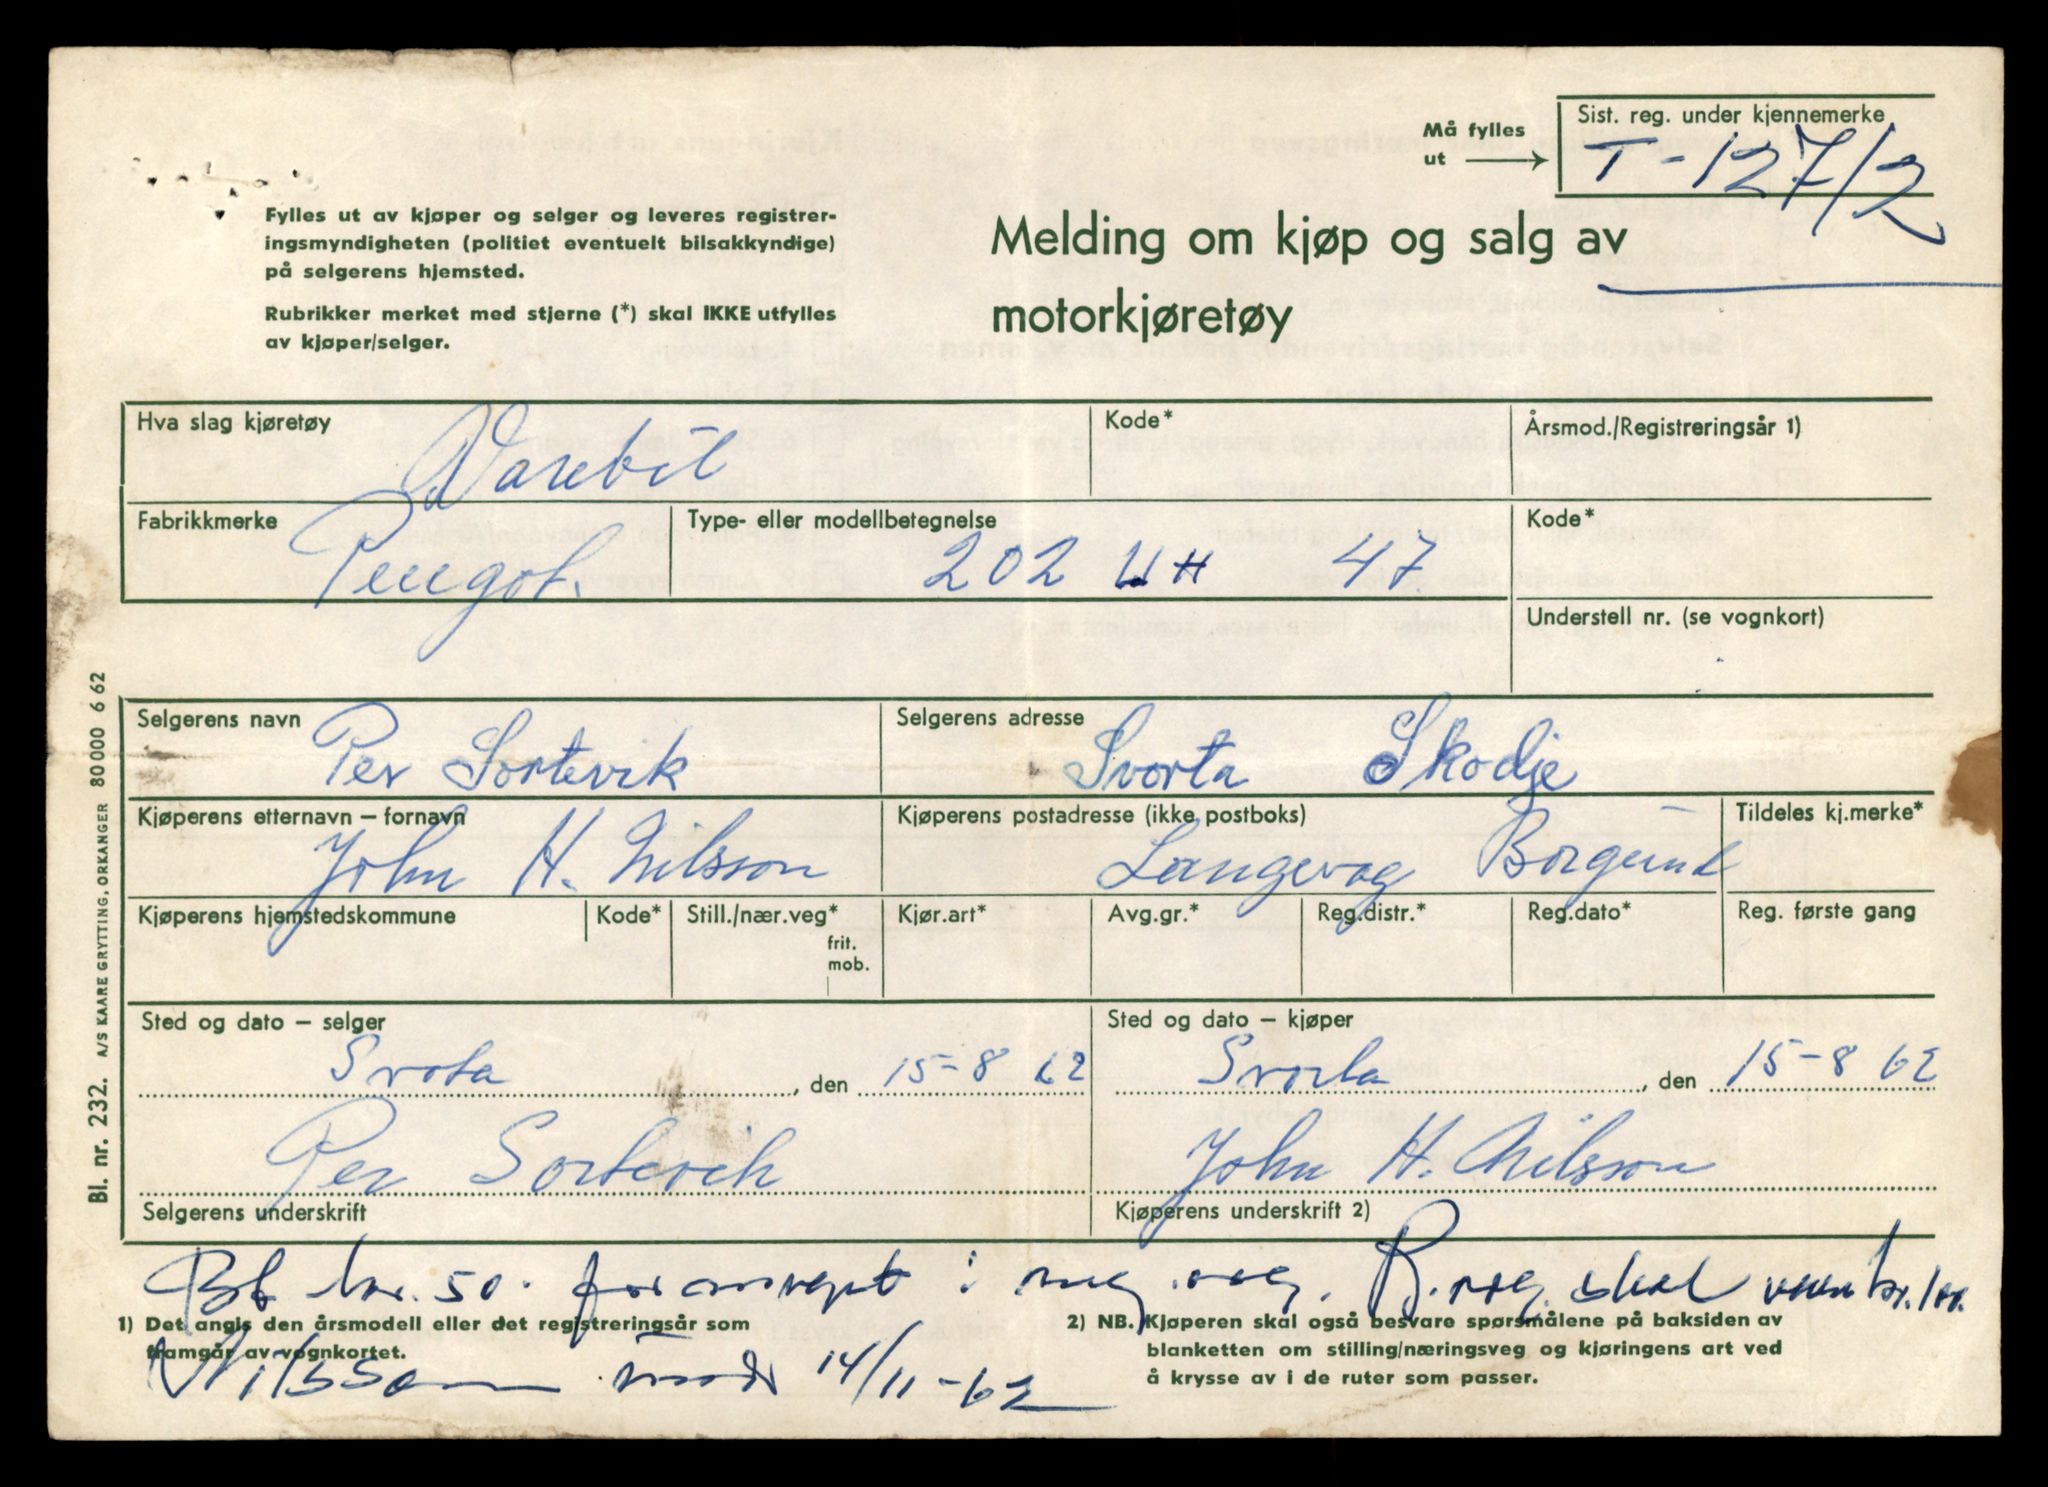 Må fylles
ut
Sist. reg. under kjennemerke
T-12712
Fylles ut av kjøper og selger og leveres registrer-
ingsmyndigheten (politiet eventuelt bilsakkyndige)
på selgerens hjemsted.
Rubrikker merket med stjerne (*) skal IKKE utfylles
av kjøper/selger.
Melding om kjøp og salg av
motorkjøretøy
Hva slag kjøretøy
Varebil
Kode*
Årsmod./Registreringsår 1)
Fabrikkmerke
Peugot.
Type- eller modellbetegnelse
202 UH 47
Kode*
Understell nr. (se vognkort)
Selgerens navn
Per Sortevik
Selgerens adresse
Svorta Skodje
Kjøperens etternavn – fornavn
John H. Nilsson
Kjøperens postadresse (ikke postboks)
Langevog Borgund
Tildeles kj.merke*
Kjøperens hjemstedskommune
Kode*
Still./nær.veg*
frit.
mob.
Kjør.art*
Avg.gr.*
Reg.distr.*
Reg.dato*
Reg. første gang
Sted og dato – selger
Svota, den 15-8 62
Sted og dato – kjøper
Svorta, den 15-8 62
Per Sortevik
John H. Nilsson
Selgerens underskrift
Kjøperens underskrift 2)
Bl. nr. 232. A/S KAARE GRYTTING, ORKANGER 80000 6 62
Bb kr. 50. i skal
1) Det angis den årsmodell eller det registreringsår som
framgår av vognkortet.
Nilsson 14/11-62
2) NB. Kjøperen skal også besvare spørsmålene på baksiden av
blanketten om stilling/næringsveg og kjøringens art ved
å krysse av i de ruter som passer.